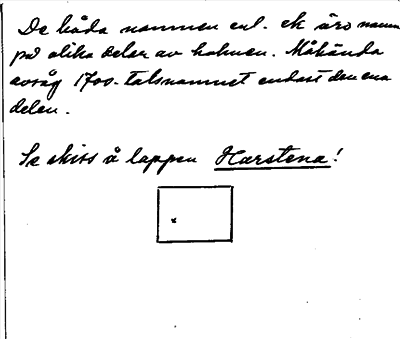 De båda namnen enl. ek äro namn
på olika delar av holmen. Måhända
avsåg 1700-talsnamnet endast den ena
delen.
Se skiss å lappen Harstena!